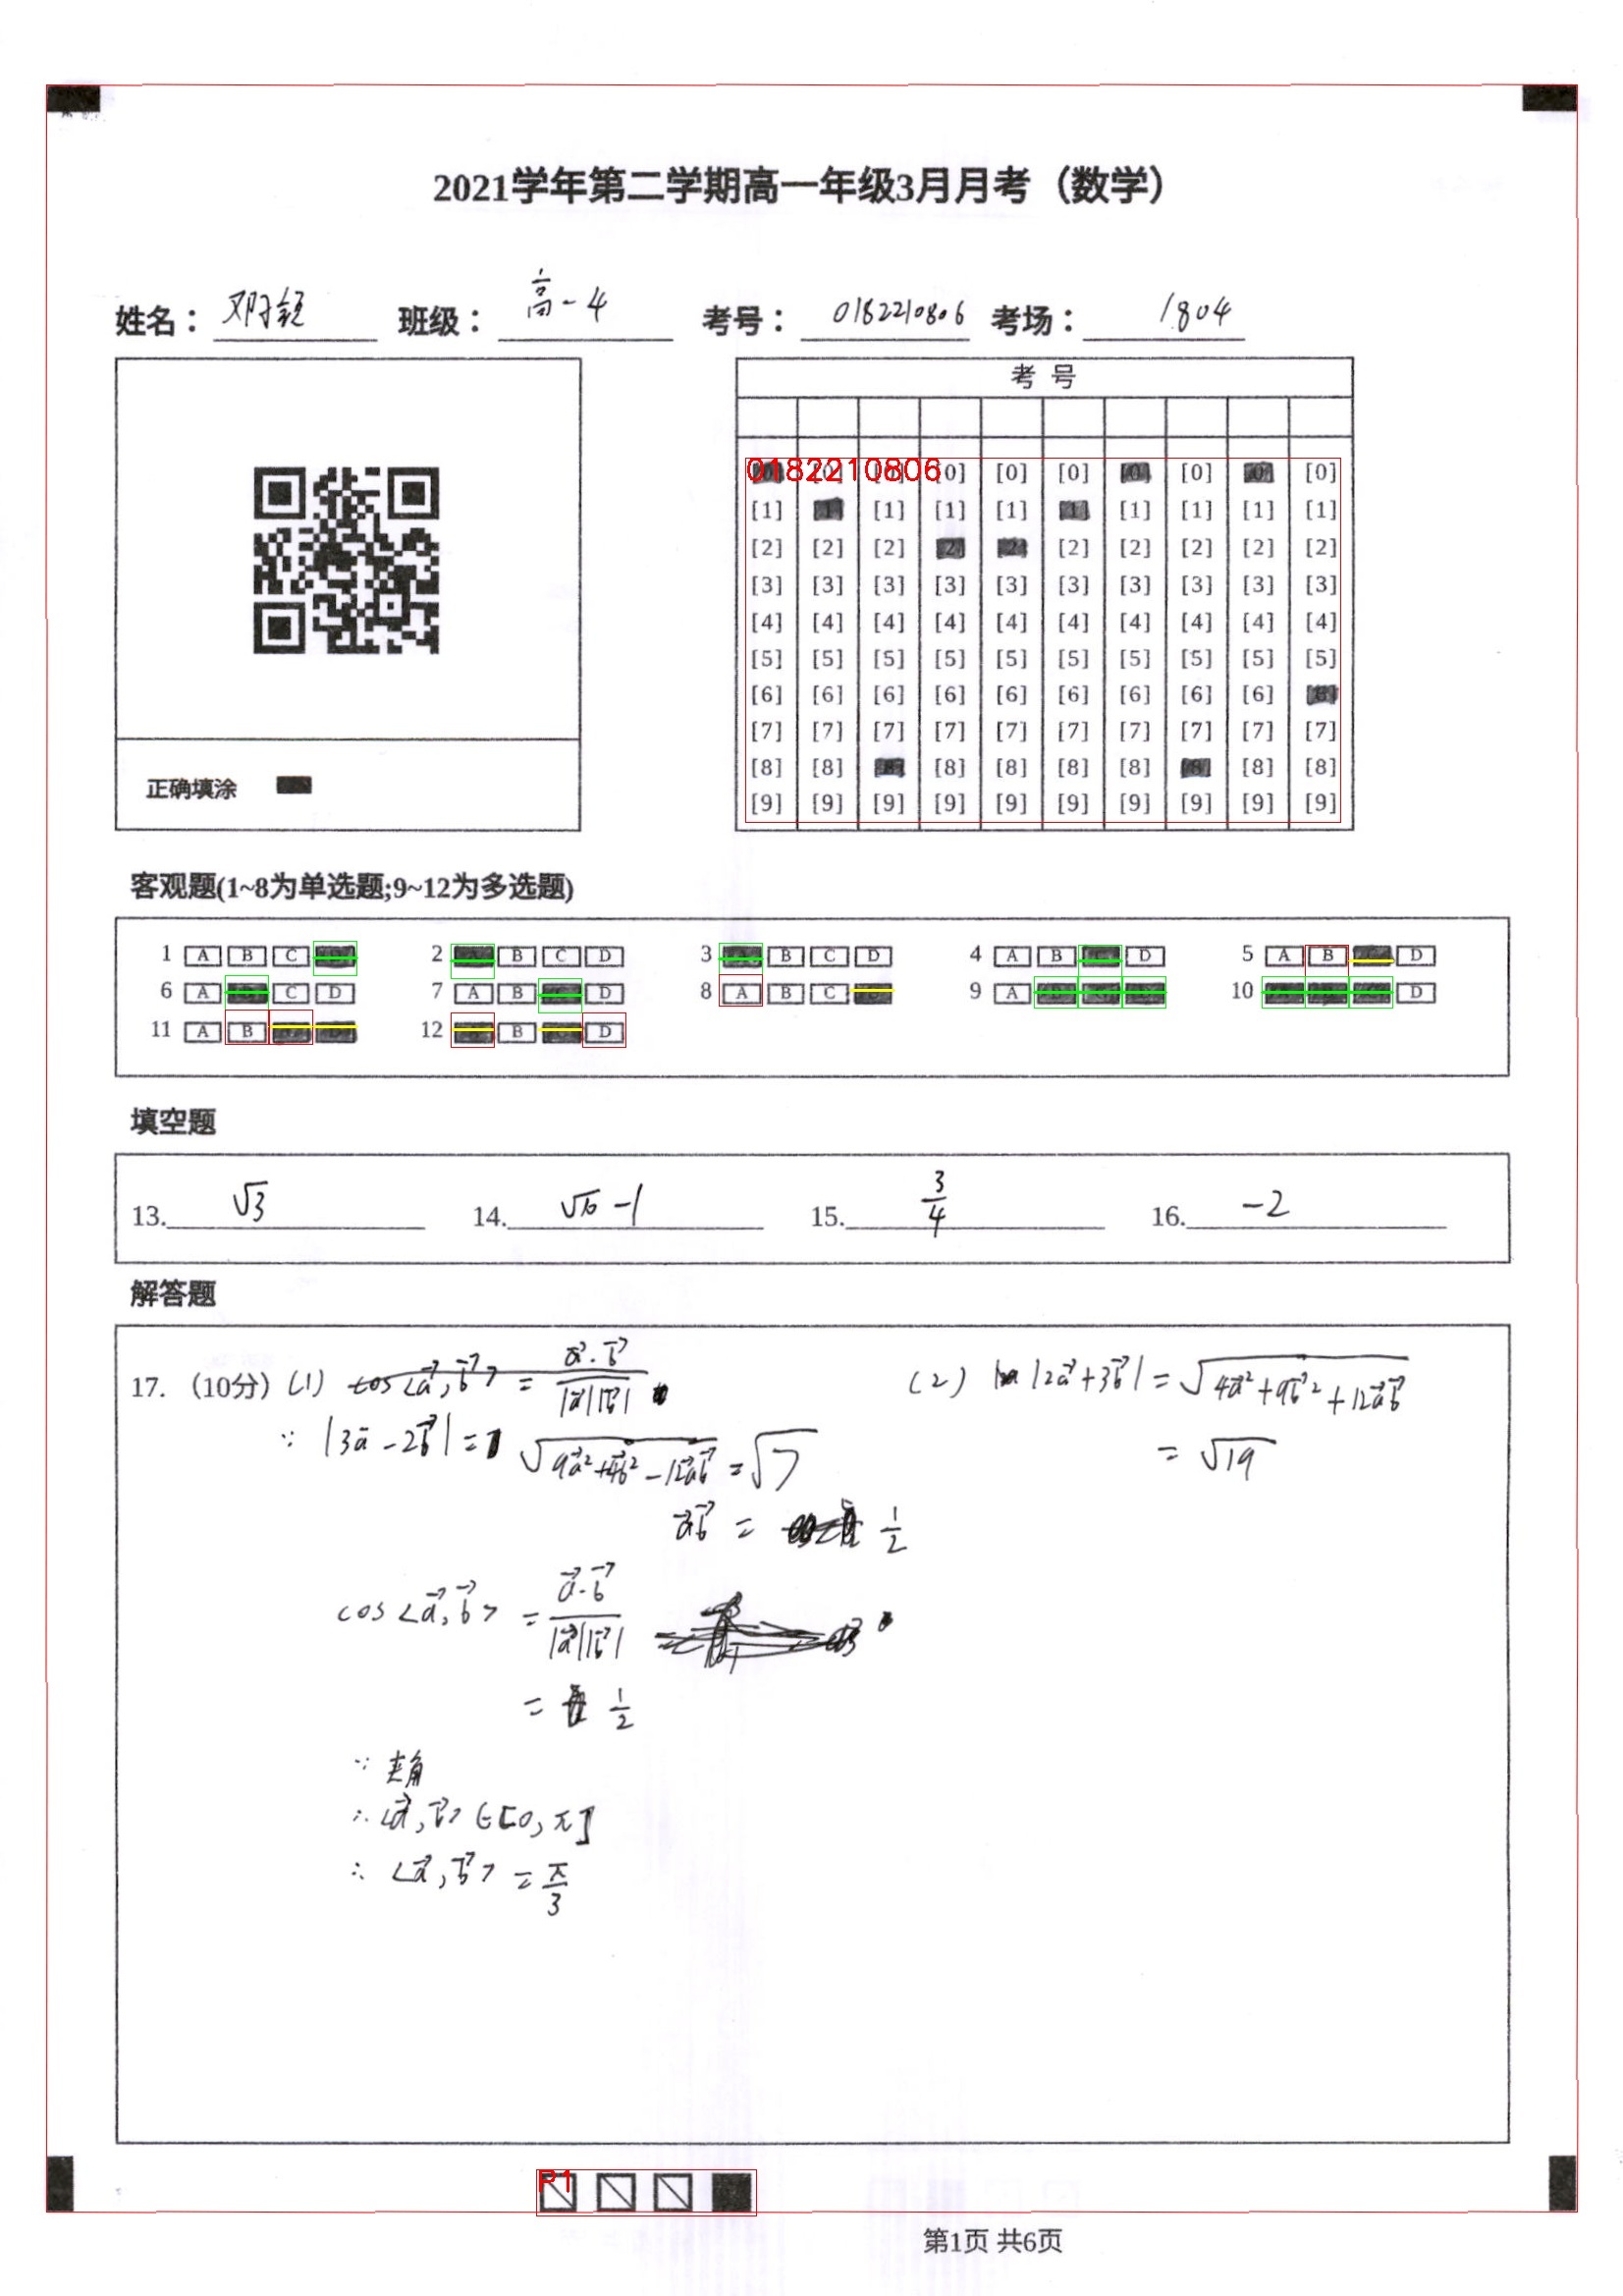 2021学年第二学期高一年级3月月考（数学）
姓名： 班级：高一4 考号：0182210806 考场：1804
考 号
0182210806
[0] [0] [0] [0] [0] [0] [0] [0] [0] [0]
[1] [1] [1] [1] [1] [1] [1] [1] [1] [1]
[2] [2] [2] [2] [2] [2] [2] [2] [2] [2]
[3] [3] [3] [3] [3] [3] [3] [3] [3] [3]
[4] [4] [4] [4] [4] [4] [4] [4] [4] [4]
[5] [5] [5] [5] [5] [5] [5] [5] [5] [5]
[6] [6] [6] [6] [6] [6] [6] [6] [6] [6]
[7] [7] [7] [7] [7] [7] [7] [7] [7] [7]
[8] [8] [8] [8] [8] [8] [8] [8] [8] [8]
[9] [9] [9] [9] [9] [9] [9] [9] [9] [9]
正确填涂
客观题(1~8为单选题;9~12为多选题)
1 A B C D 2 A B C D 3 A B C D 4 A B C D 5 A B C D
6 A B C D 7 A B C D 8 A B C D 9 A B C D 10 A B C D
11 A B C D 12 A B C D
填空题
13. √3 14. √10 -1 15. 3/4 16. -2
解答题
17.（10分）(1) cos<a⃗,b⃗> = a⃗·b⃗/|a⃗||b⃗|
∵ |3a⃗-2b⃗| = √(9a⃗²+4b⃗²-12a⃗b⃗) = √7
a⃗b⃗ = 1/2
cos<a⃗,b⃗> = a⃗·b⃗/|a⃗||b⃗|
= 1/2
∵ 夹角
∴ <a⃗,b⃗> ∈[0,π]
∴ <a⃗,b⃗> = π/3
(2) |2a⃗+3b⃗| = √(4a⃗²+9b⃗²+12a⃗b⃗)
= √19
P1
第1页 共6页